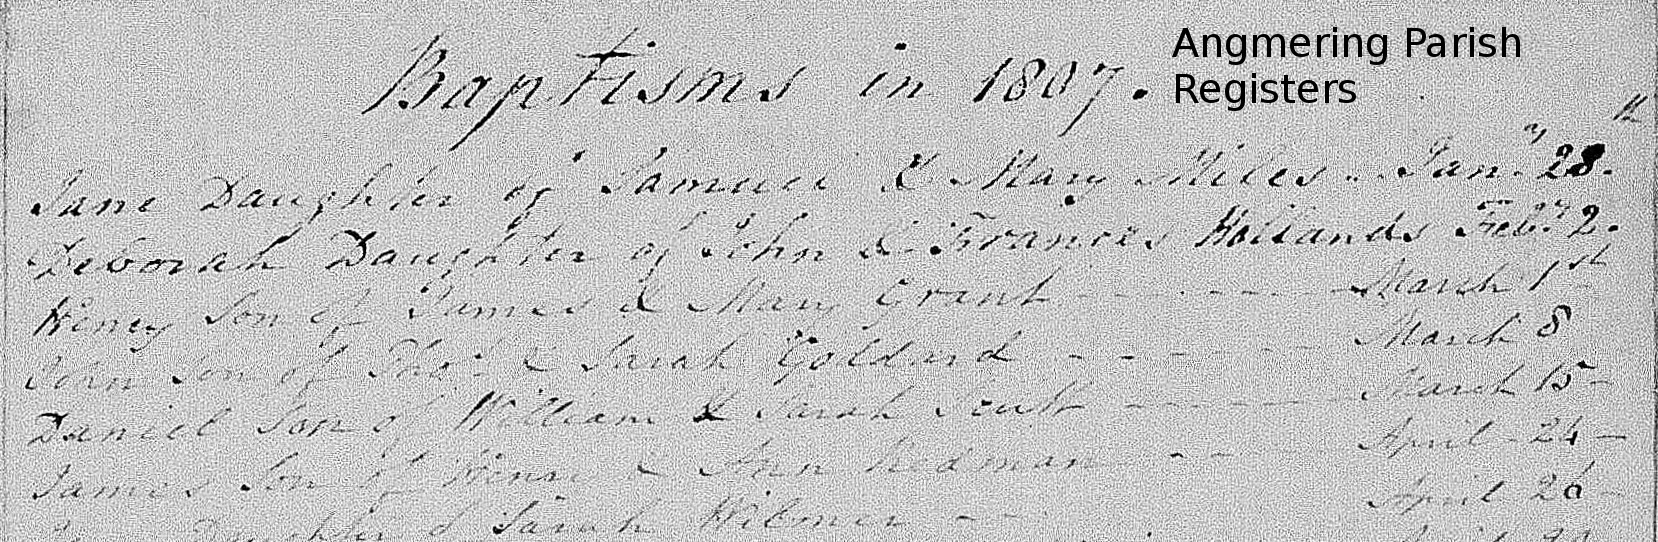 Angmering Parish
Registers
Baptisms in 1807.
Jane Daughter of Samuel & Mary Miles - Jan.y 28.th
Deborah Daughter of John & Frances Hollands Feb.y 2.
Henry Son of James & Mary Grant - - - - March 1st
John Son of Tho.s & Sarah Goldurd - - - - March 8
Daniel Son of William & Sarah Scutt - - - March 15 -
James Son of Henry & Ann Redman - - - April - 24 -
Daughter of Sarah Wilmer - - April 26 -